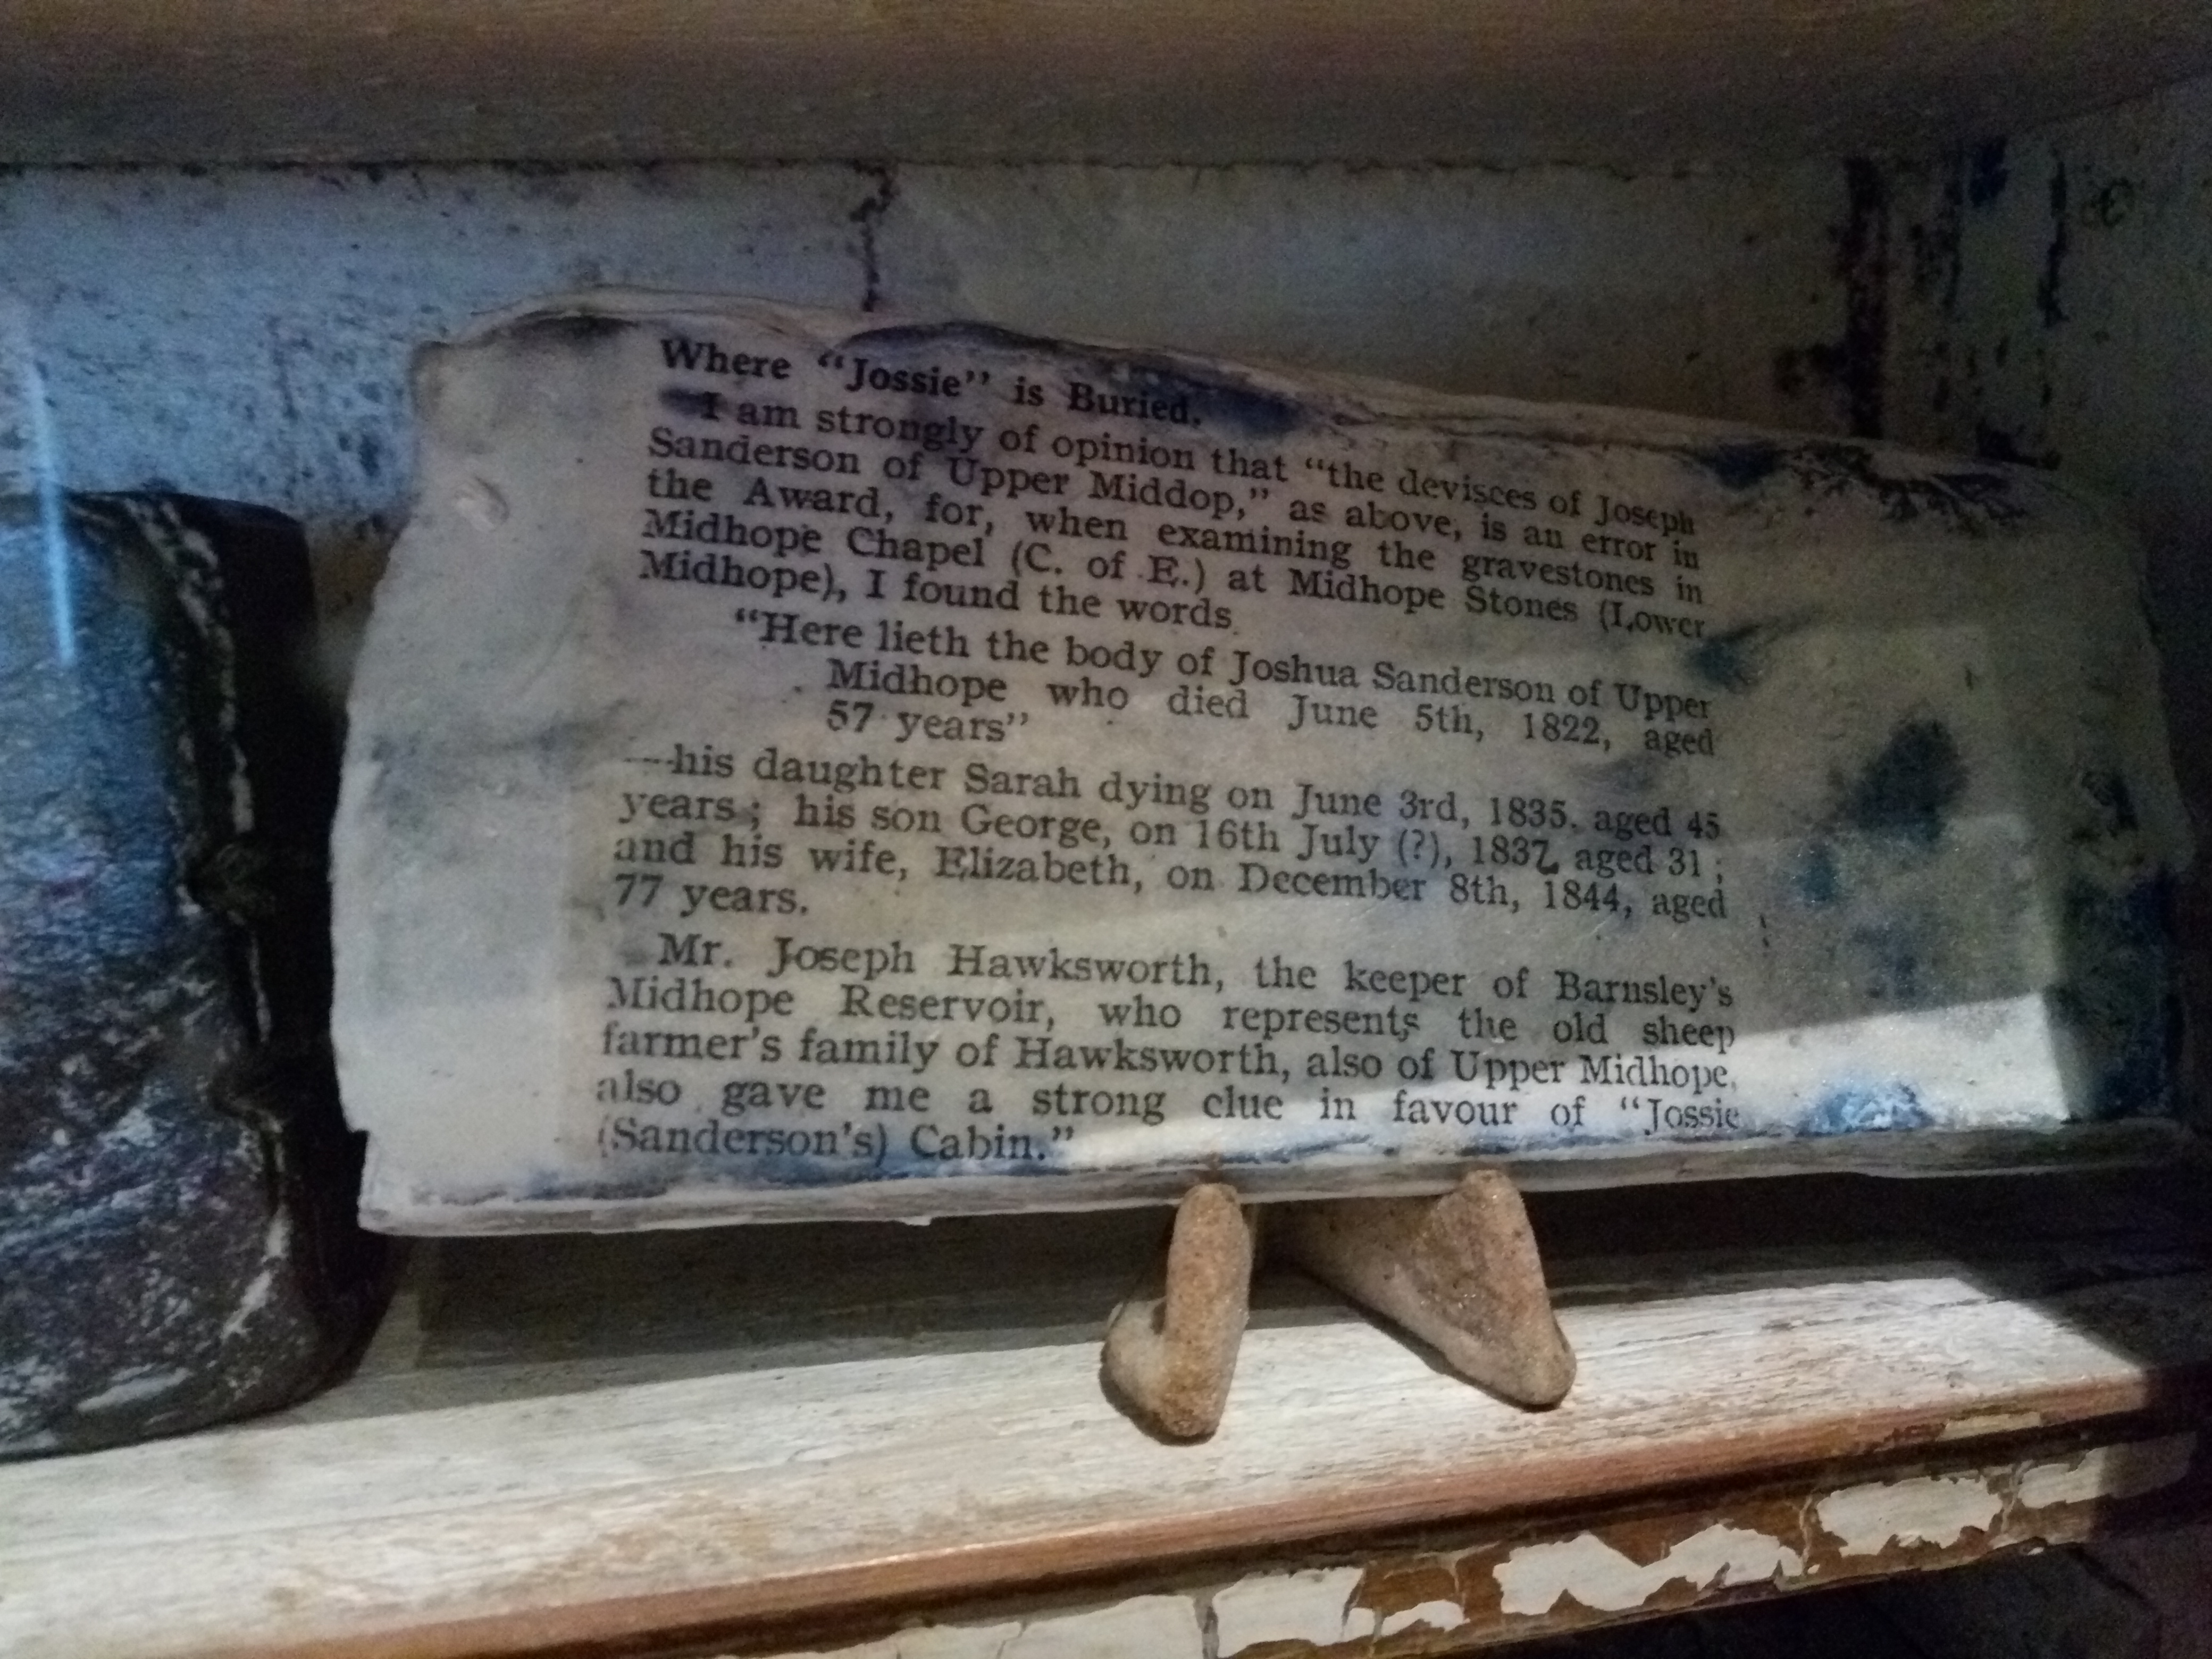 Where "Jossie" is Buried.
I am strongly of opinion that "the devisees of Joseph
Sanderson of Upper Middop," as above, is an error in
the Award, for, when examining the gravestones in
Midhope Chapel (C. of E.) at Midhope Stones (Lower
Midhope), I found the words
"Here lieth the body of Joshua Sanderson of Upper
Midhope who died June 5th, 1822, aged
57 years"
—his daughter Sarah dying on June 3rd, 1835, aged 45
years; his son George, on 16th July (?), 1837, aged 31;
and his wife, Elizabeth, on December 8th, 1844, aged
77 years.
Mr. Joseph Hawksworth, the keeper of Barnsley's
Midhope Reservoir, who represents the old sheep
farmer's family of Hawksworth, also of Upper Midhope,
also gave me a strong clue in favour of "Jossie
(Sanderson's) Cabin."